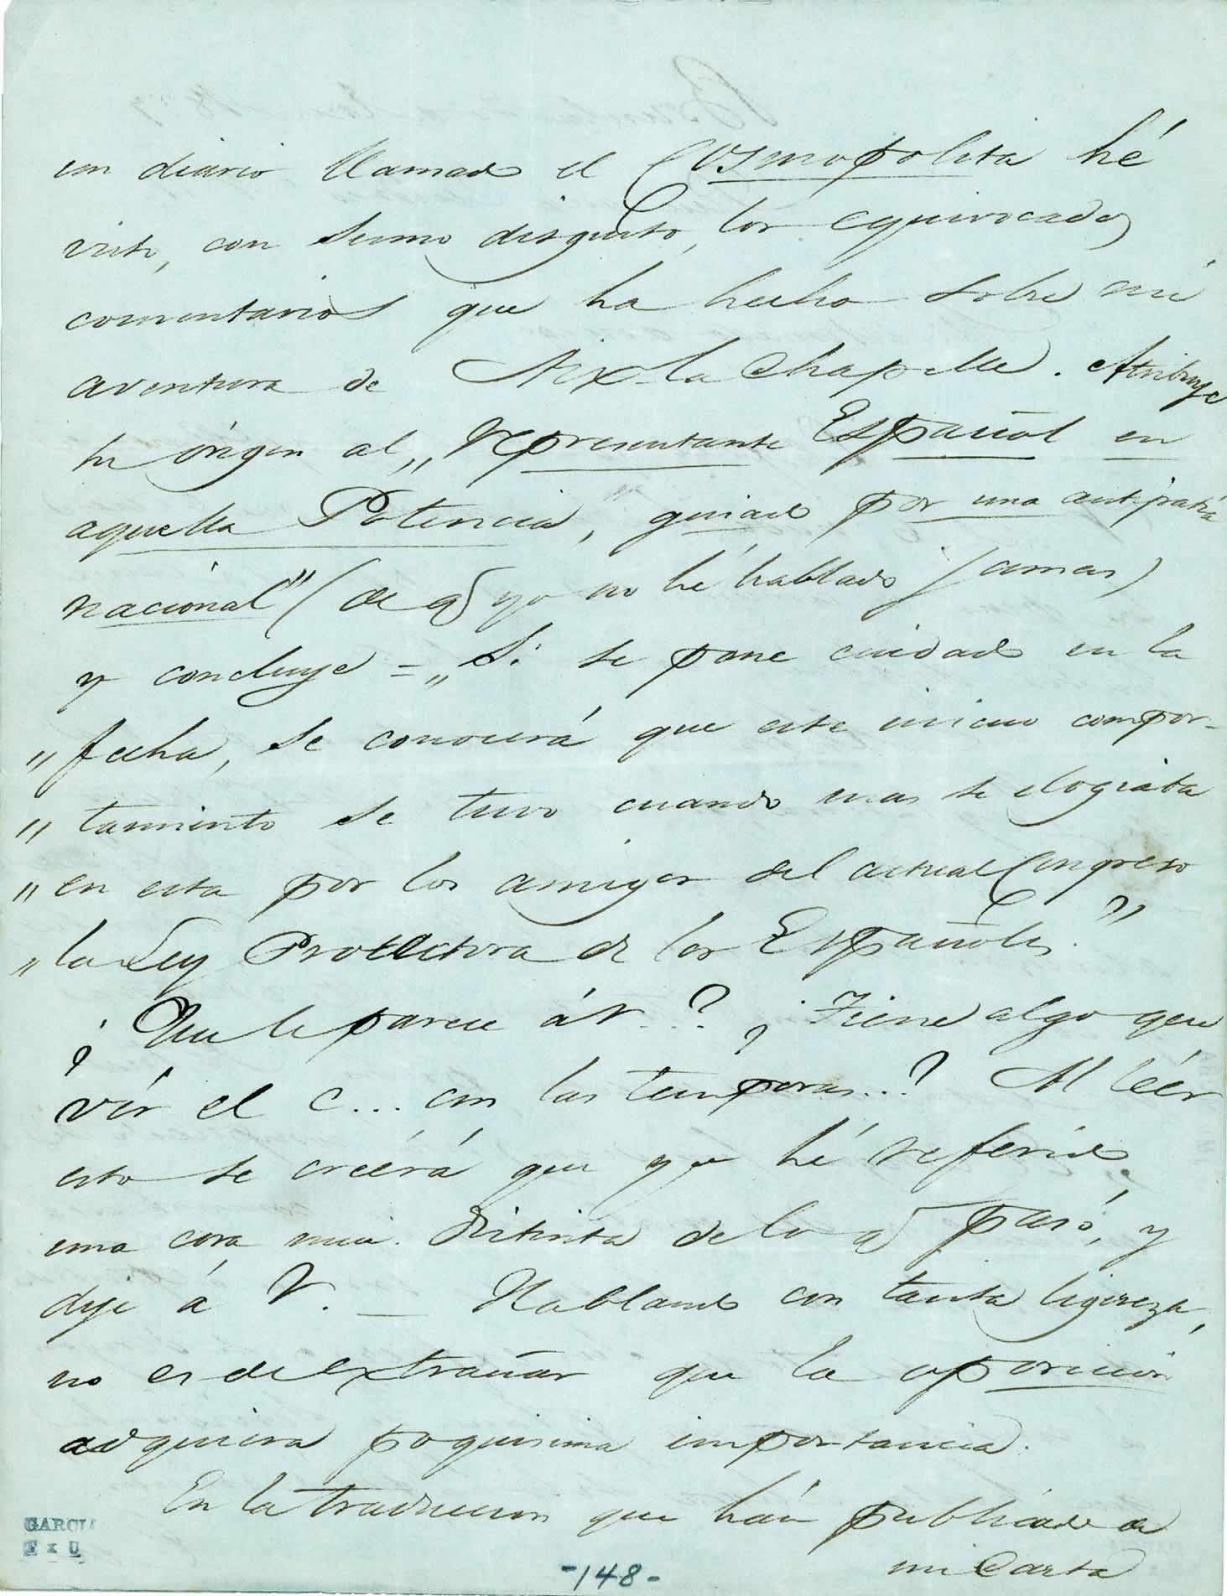 un diario llamado el Cosmopolita hé
visto, con sumo disgusto, los equivocados
comentarios que ha hecho sobre mi
aventura de Aix-la Chapelle. Atribuye
su órigen al „Representante Español en
aquella Potencia, guiado por una antipatia
nacional" (de q yo no hé hablado jamas)
y concluye = „Si se pone cuidado en la
„fecha, se conocerá que este inicuo compor-
„tamiento se tuvo cuando mas se elogiaba
„en esta por los amigos del actual Congreso
„la Ley Protectora de los Españoles."
¿Que le parece á V..? ¿Tiene algo que
vér el c... con las temporas..? Al léer
esto se creérá que yo hé referido
una cosa mui distinta de lo q pasó, y
dije á V. — Hablando con tanta ligereza,
no es de extrañar que la oposicion
adquiera poquisima importancia.
En la traduccion que hán publicado de
mi Carta
GARCIA
-148-